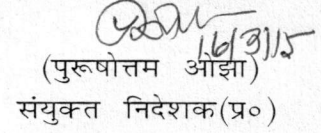 16/3/15
(पुरूषोत्तम ओझा)
संयुक्त निदेशक(प्र०)